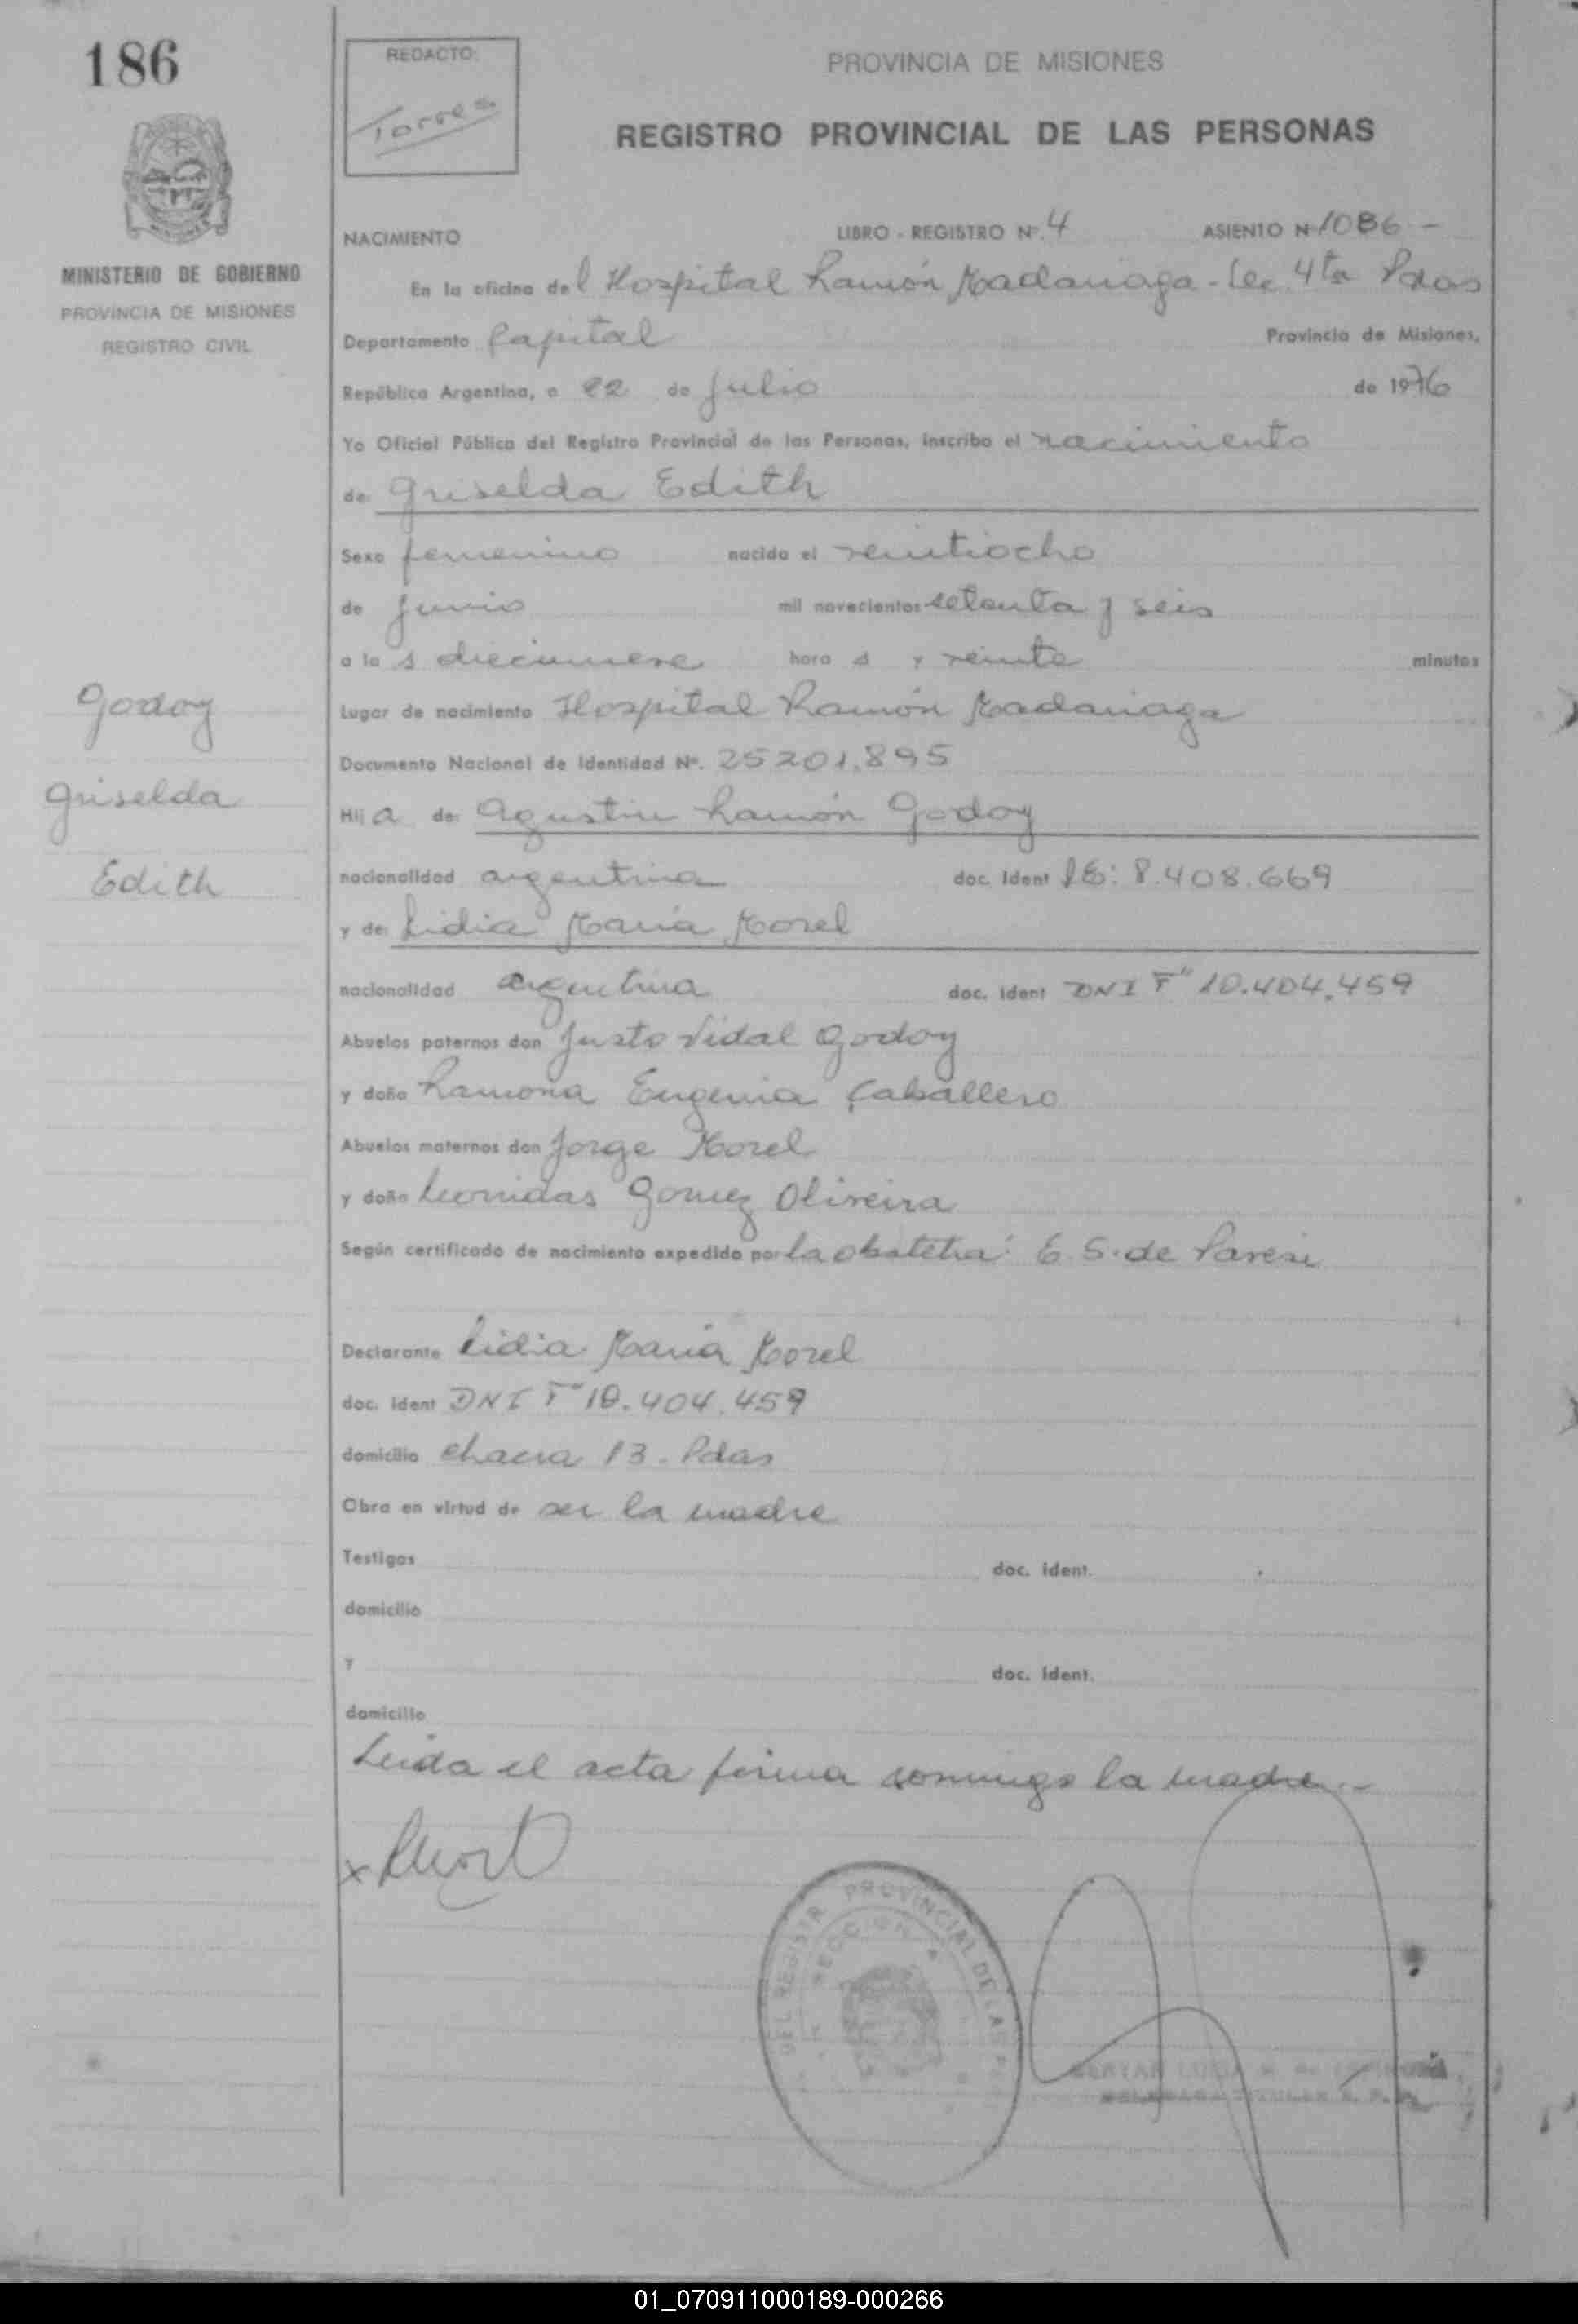 186
REDACTO:
Torres
PROVINCIA DE MISIONES
REGISTRO PROVINCIAL DE LAS PERSONAS
MINISTERIO DE GOBIERNO
PROVINCIA DE MISIONES
REGISTRO CIVIL
NACIMIENTO LIBRO - REGISTRO Nº. 4 ASIENTO Nº 1086 -
En la oficina del Hospital Ramón Madariaga - Sec. 4ta Pdas
Departamento Capital Provincia de Misiones,
República Argentina, a 22 de Julio de 1976
Yo Oficial Público del Registro Provincial de las Personas, inscribo el nacimiento
de Griselda Edith
Sexo femenino nacido el veintiocho
de Junio mil novecientos setenta y seis
a las diecinueve hora s y veinte minutos
Godoy
Griselda
Edith
Lugar de nacimiento Hospital Ramón Madariaga
Documento Nacional de Identidad Nº. 25201.895
Hij a de: Agustin Ramón Godoy
nacionalidad argentina doc. ident LE: 8.408.669
y de: Lidia Maria Morel
nacionalidad argentina doc. ident DNI F" 10.404.459
Abuelos paternos don Justo Vidal Godoy
y doña Ramona Eugenia Caballero
Abuelos maternos don Jorge Morel
y doña Leonidas Gomez Oliveira
Según certificado de nacimiento expedido por la obstetra: E. S. de Paresi
Declarante Lidia Maria Morel
doc. ident DNI F" 10.404.459
domicilio chacra 13 - Pdas
Obra en virtud de ser la madre
Testigos doc. ident.
domicilio
y doc. ident.
domicilio
Leida el acta firma conmigo la madre.-
x
DEL REGISTR PROVINCIAL DE LAS P
SECCION 4
01_070911000189-000266